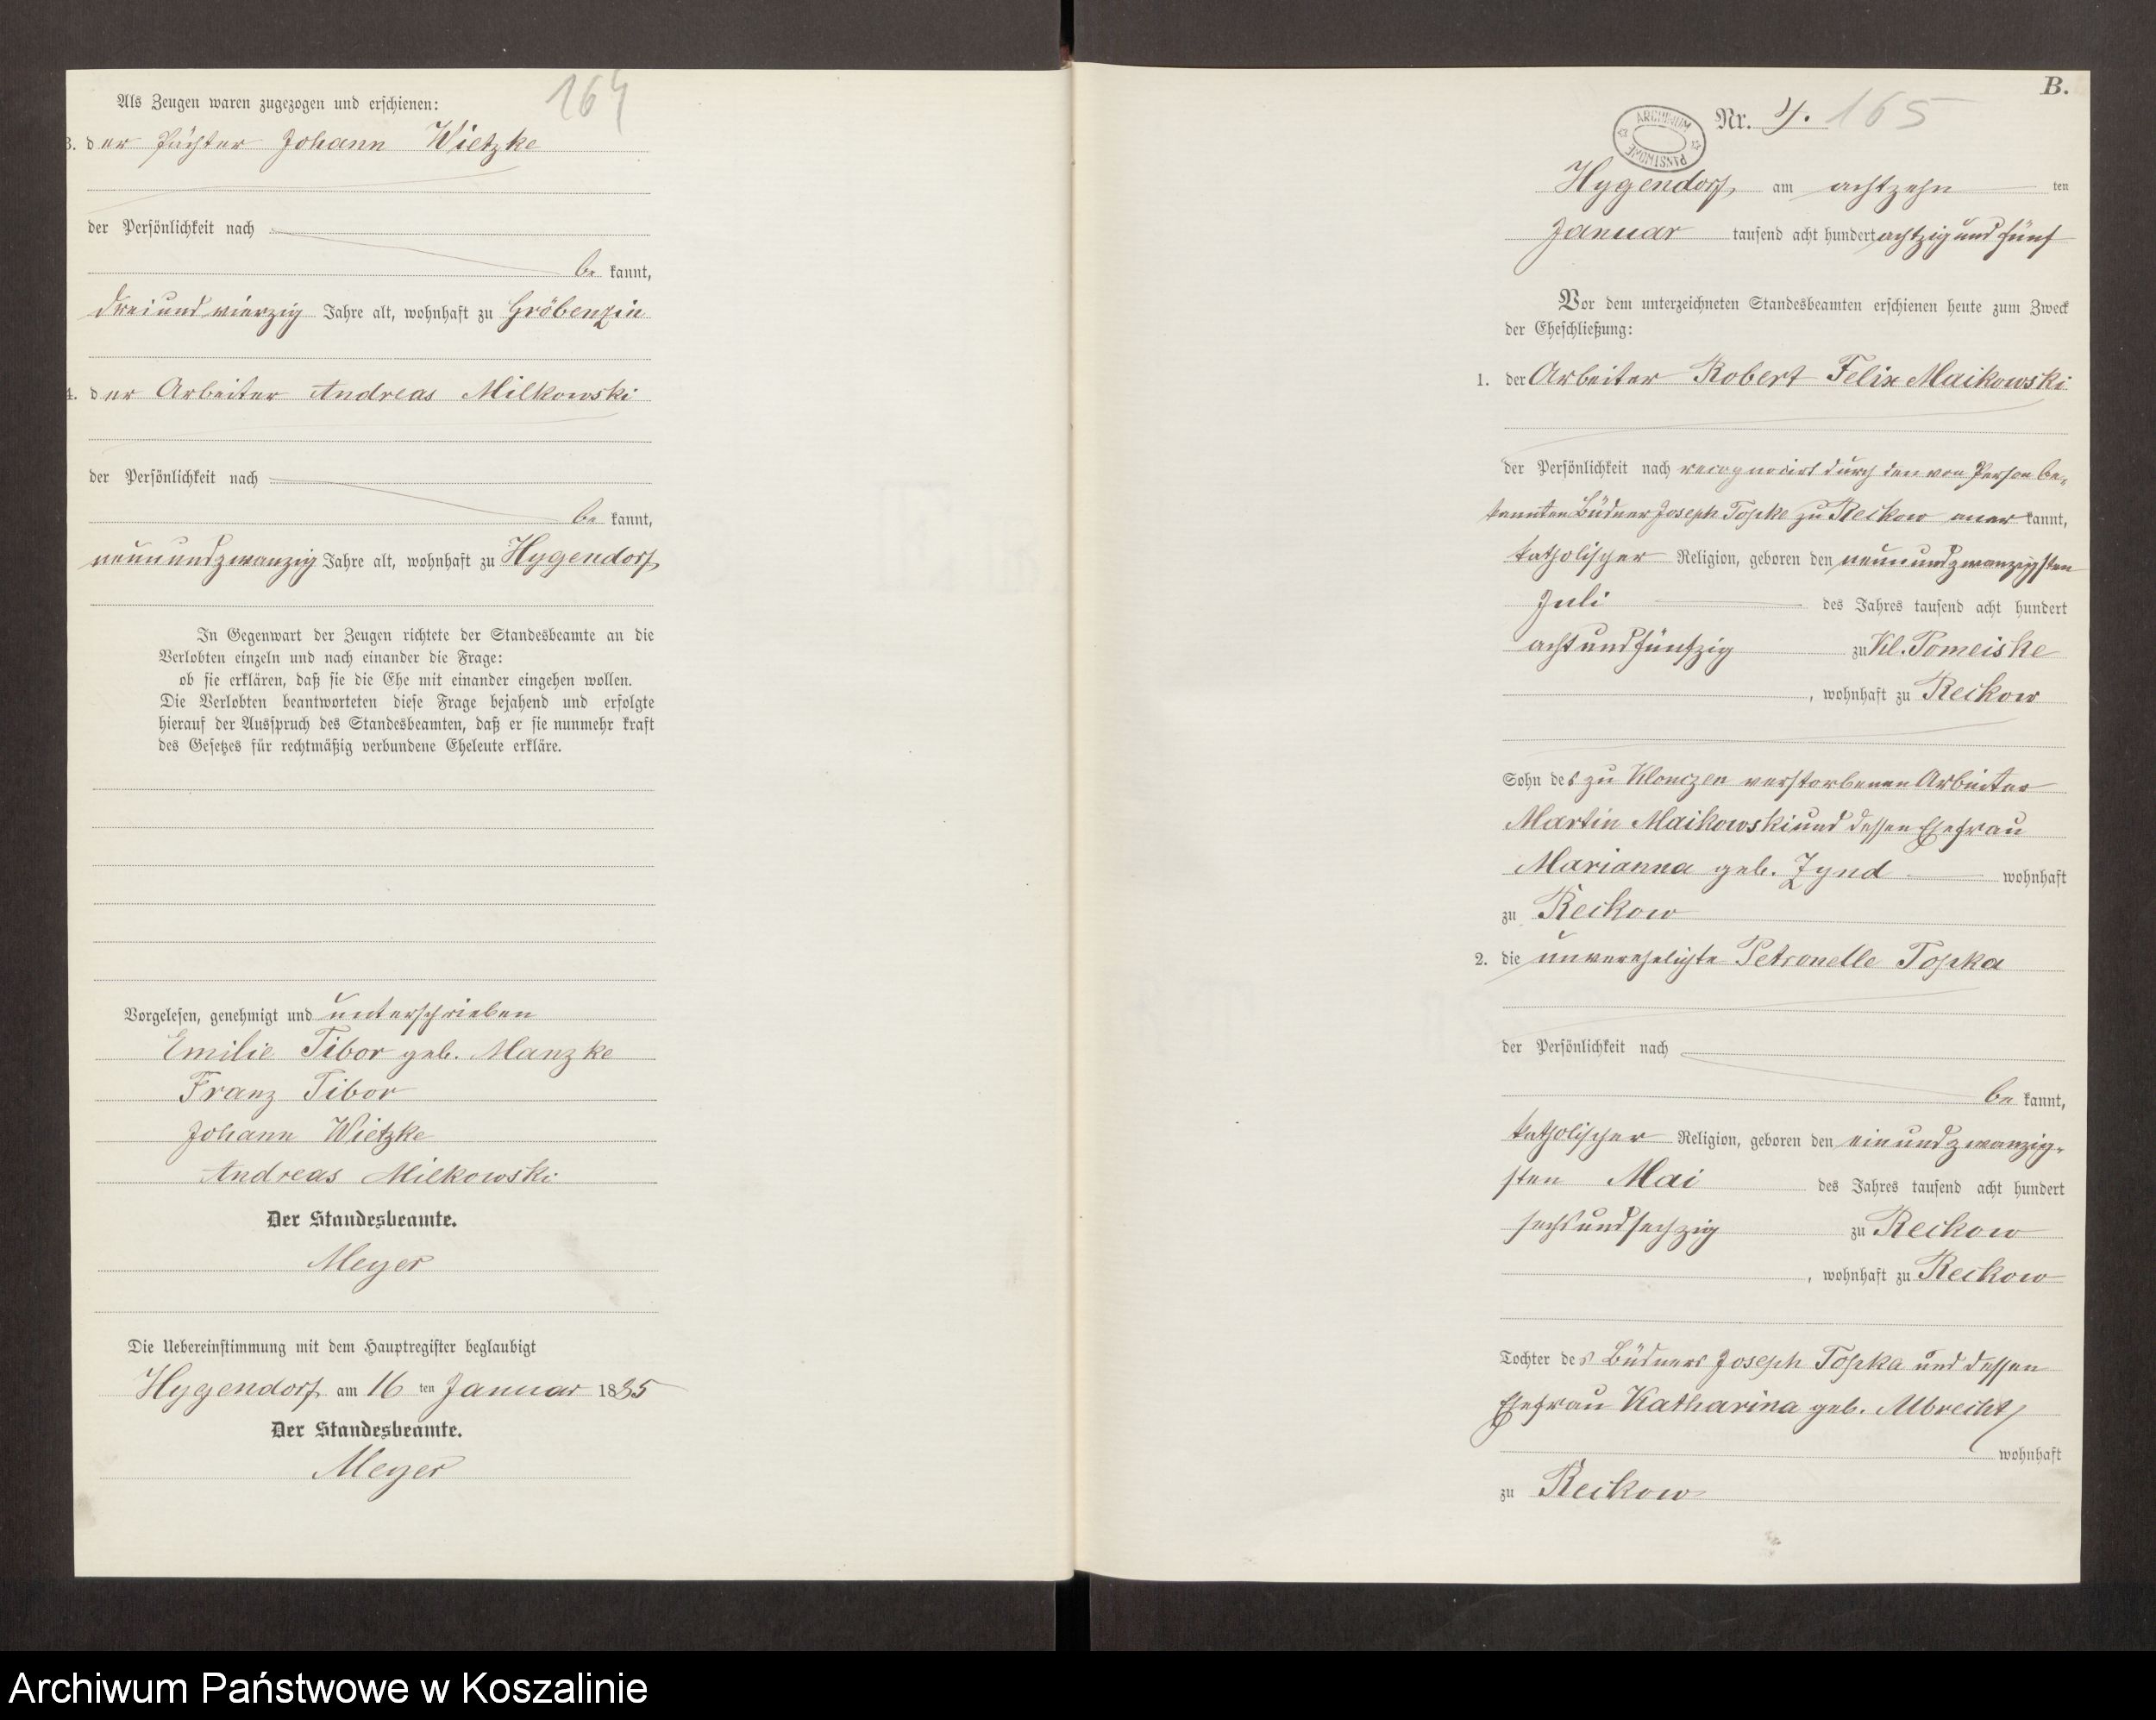 164
Als Zeugen waren zugezogen und erschienen:
3. der Pächter Johann Wietzke
der Persönlichkeit nach
be kannt,
dreiundvierzig Jahre alt, wohnhaft zu Gröbenzin
4. der Arbeiter Andreas Milkowski
der Persönlichkeit nach
be kannt,
neunundzwanzig Jahre alt, wohnhaft zu Hygendorf
In Gegenwart der Zeugen richtete der Standesbeamte an die
Verlobten einzeln und nach einander die Frage:
ob sie erklären, daß sie die Ehe mit einander eingehen wollen.
Die Verlobten beantworteten diese Frage bejahend und erfolgte
hierauf der Ausspruch des Standesbeamten, daß er sie nunmehr kraft
des Gesetzes für rechtmäßig verbundene Eheleute erkläre.
Vorgelesen, genehmigt und unterschrieben
Emilie Tibor geb. Manzke
Franz Tibor
Johann Wietzke
Andreas Milkowski
Der Standesbeamte.
Meyer
Die Uebereinstimmung mit dem Hauptregister beglaubigt
Hygendorf am 16 ten Januar 1885
Der Standesbeamte.
Meyer
B.
ARCHIWUM PAŃSTWOWE
Nr. 4. 165
Hygendorf, am achtzehn ten
Januar tausend acht hundert achtzig und fünf
Vor dem unterzeichneten Standesbeamten erschienen heute zum Zweck
der Eheschließung:
1. der Arbeiter Robert Felix Maikowski
der Persönlichkeit nach recognocirt durch den von Person be-
kannten Büdner Joseph Topke zu Reckow aner kannt,
katholischer Religion, geboren den neunundzwanzigsten
Juli des Jahres tausend acht hundert
achtundfünfzig zu Kl. Pomeiske
, wohnhaft zu Reckow
Sohn des zu Klonczen verstorbenen Arbeiter
Martin Maikowski und dessen Ehefrau
Marianna geb. Zynd wohnhaft
zu Reckow
2. die unverehelichte Petronelle Topka
der Persönlichkeit nach
be kannt,
katholischer Religion, geboren den einundzwanzig-
sten Mai des Jahres tausend acht hundert
sechsundsechzig zu Reckow
, wohnhaft zu Reckow
Tochter des Büdners Joseph Topka und dessen
Ehefrau Katharina geb. Albrecht,
wohnhaft
zu Reckow
Archiwum Państwowe w Koszalinie